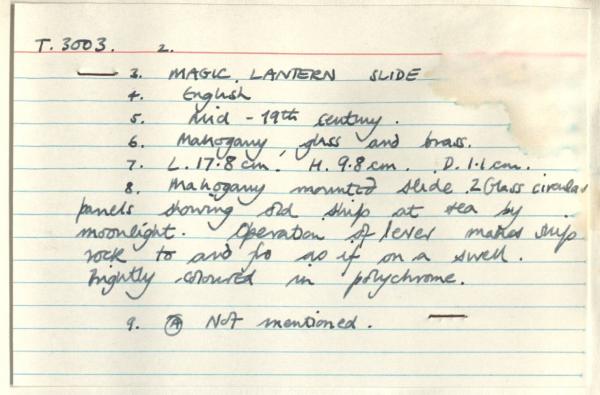 T.3003. 2.
3. MAGIC LANTERN SLIDE
4. English
5. Mid - 19th century.
6. Mahogany, glass and brass.
7. L. 17.8 cm. H. 9.8 cm. D. 1.1 cm.
8. Mahogany mounted slide. 2 Glass circular
panels showing old ship at sea by
moonlight. Operation of lever makes ship
rock to and fro as if on a swell.
Brightly coloured in polychrome.
9. (A) Not mentioned.